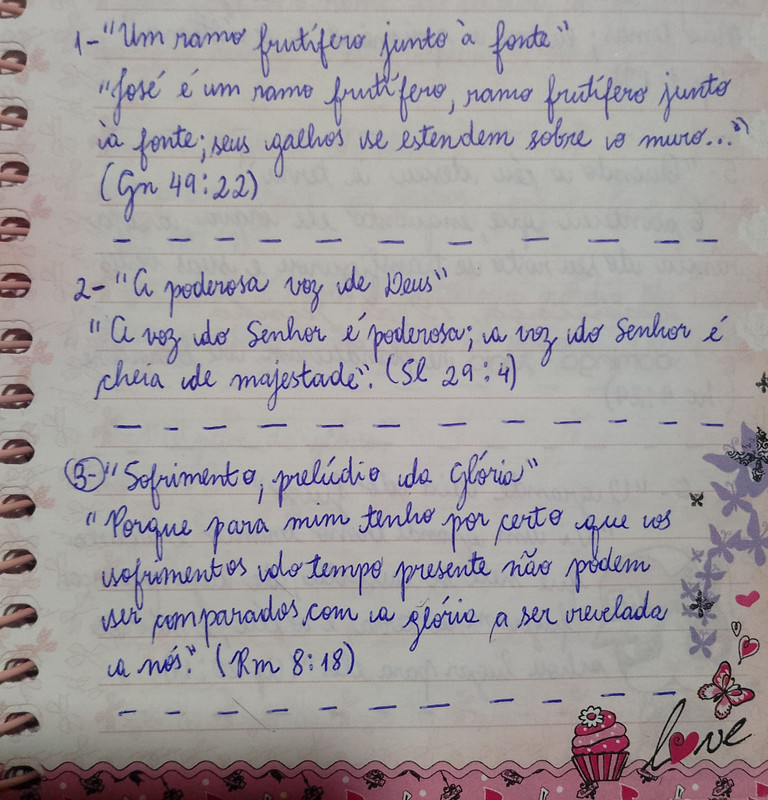 1- "Um ramo frutífero junto à fonte"
"José é um ramo frutífero, ramo frutífero junto
à fonte; seus galhos se estendem sobre o muro..."
(Gn 49:22)
2- "A poderosa voz de Deus"
"A voz do Senhor é poderosa; a voz do Senhor é
cheia de majestade". (Sl 29:4)
3- "Sofrimento, prelúdio da Glória"
"Porque para mim tenho por certo que os
sofrimentos do tempo presente não podem
ser comparados com a glória a ser revelada
a nós." (Rm 8:18)
love